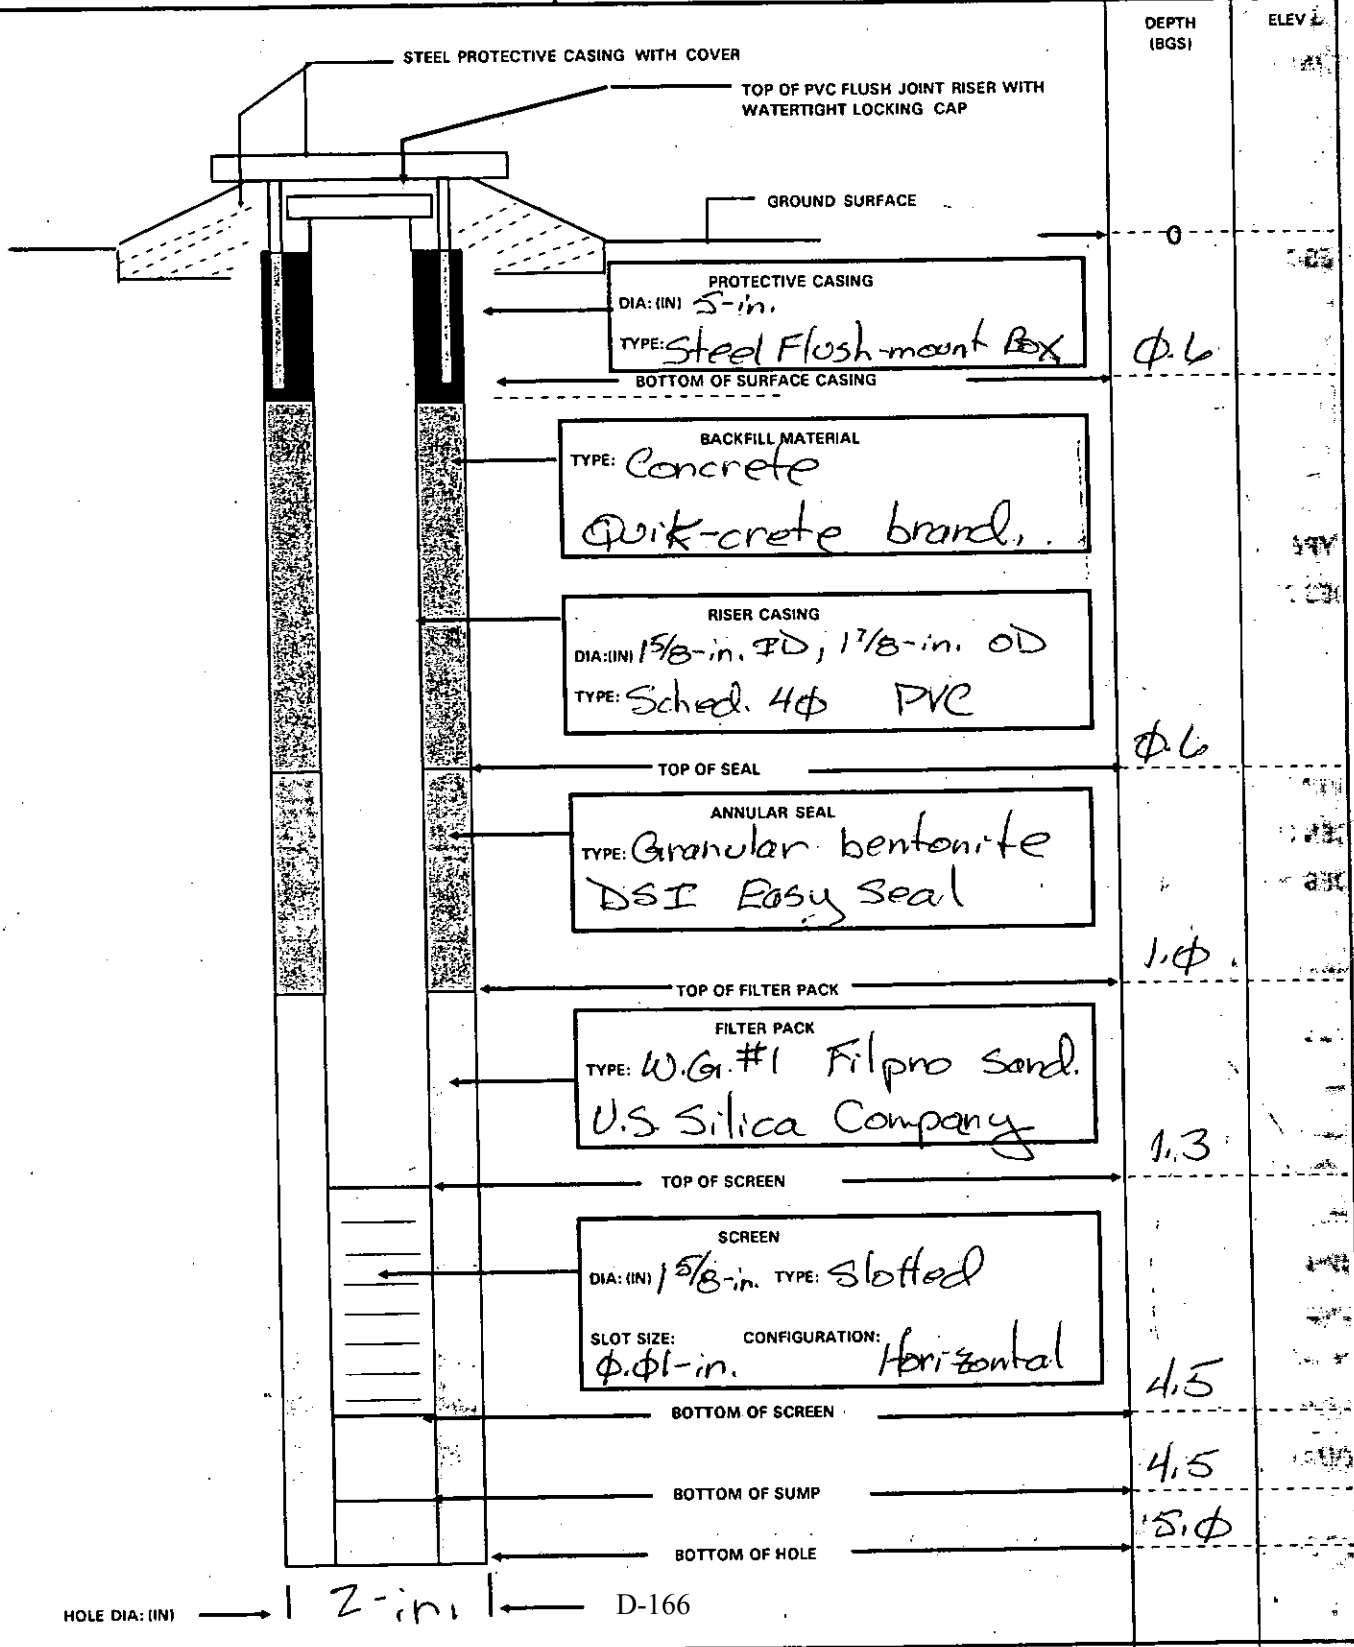 DEPTH
(BGS)
ELEV
STEEL PROTECTIVE CASING WITH COVER
TOP OF PVC FLUSH JOINT RISER WITH
WATERTIGHT LOCKING CAP
GROUND SURFACE
0
PROTECTIVE CASING
DIA: (IN) 5-in.
TYPE: Steel Flush-mount Box
0.6
BOTTOM OF SURFACE CASING
BACKFILL MATERIAL
TYPE: Concrete
Quik-crete brand.
RISER CASING
DIA:(IN) 1 5/8-in. ID, 1 7/8-in. OD
TYPE: Sched. 40 PVC
0.6
TOP OF SEAL
ANNULAR SEAL
TYPE: Granular bentonite
DSI Easy Seal
1.0
TOP OF FILTER PACK
FILTER PACK
TYPE: W.G. #1 Filpro Sand.
U.S. Silica Company
1.3
TOP OF SCREEN
SCREEN
DIA: (IN) 1 5/8-in. TYPE: Slotted
SLOT SIZE: CONFIGURATION:
0.01-in. Horizontal
4.5
BOTTOM OF SCREEN
4.5
BOTTOM OF SUMP
5.0
BOTTOM OF HOLE
HOLE DIA: (IN) 2-in. D-166